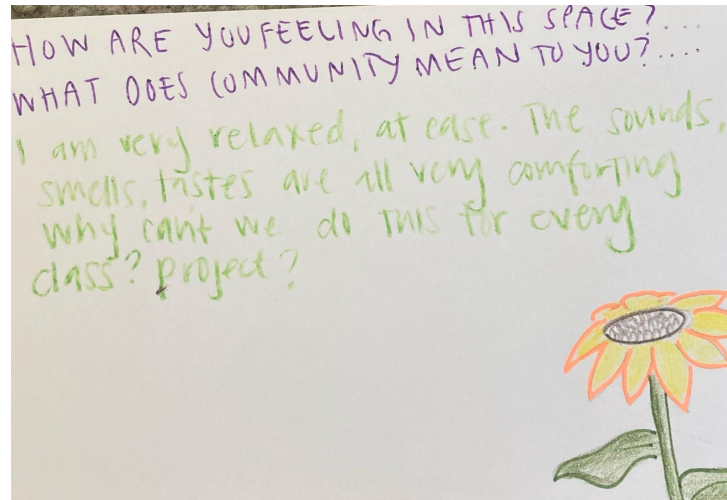 HOW ARE YOU FEELING IN THIS SPACE?...
WHAT DOES COMMUNITY MEAN TO YOU?....
I am very relaxed, at ease. The sounds,
smells, tastes are all very comforting
why can't we do THIS for every
class? project?